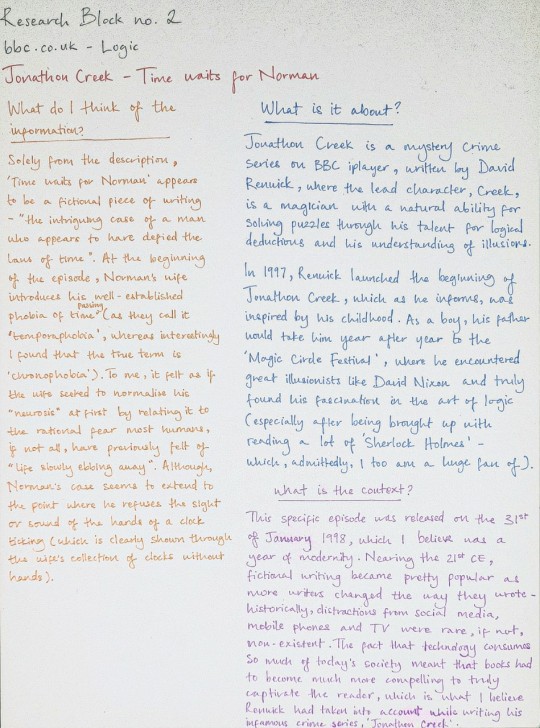 Research Block no. 2
bbc.co.uk - Logic
Jonathon Creek - Time waits for Norman
What do I think of the
information?
Solely from the description,
'Time waits for Norman' appears
to be a fictional piece of writing
- "the intriguing case of a man
who appears to have defied the
laws of time". At the beginning
of the episode, Norman's wife
introduces his well-established
phobia of time passing (as they call it
'temporaphobia', whereas interestingly
I found that the true term is
'chronophobia'). To me, it felt as if
the wife seeked to normalise his
"neurosis" at first by relating it to
the rational fear most humans,
if not all, have previously felt of
"life slowly ebbing away". Although,
Norman's case seems to extend to
the point where he refuses the sight
or sound of the hands of a clock
ticking (which is clearly shown through
the wife's collection of clocks without
hands).
What is it about?
Jonathon Creek is a mystery crime
series on BBC iplayer, written by David
Renwick, where the lead character, Creek,
is a magician with a natural ability for
solving puzzles through his talent for logical
deductions and his understanding of illusions.
In 1997, Renwick launched the beginning of
Jonathon Creek, which as he informs, was
inspired by his childhood. As a boy, his father
would take him year after year to the
'Magic Circle Festival', where he encountered
great illusionists like David Nixon and truly
found his fascination in the art of logic
(especially after being brought up with
reading a lot of 'Sherlock Holmes' -
which, admittedly, I too am a huge fan of).
What is the context?
This specific episode was released on the 31st
of January 1998, which I believe was a
year of modernity. Nearing the 21st CE,
fictional writing became pretty popular as
more writers changed the way they wrote -
historically, distractions from social media,
mobile phones and TV were rare, if not,
non-existent. The fact that technology consumes
so much of today's society meant that books had
to become much more compelling to truly
captivate the reader, which is what I believe
Renwick had taken into account while writing his
infamous crime series, 'Jonathon Creek'.